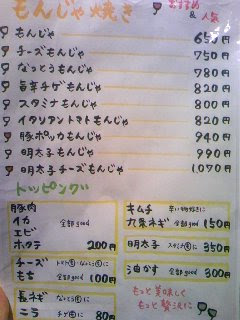 もんじゃ焼き
おすすめ
& 人気
もんじゃ 650円
チーズもんじゃ 750円
なっとうもんじゃ 780円
旨辛チゲもんじゃ 820円
スタミナもんじゃ 800円
イタリアントマトもんじゃ 820円
豚ポッカもんじゃ 940円
明太子もんじゃ 990円
明太子チーズもんじゃ 1,070円
トッピング
豚肉
イカ 全部good
エビ
ホタテ 200円
チーズ
もち 全部good 100円
長ネギ
ニラ 80円
キムチ
九条ネギ 全部good 150円
明太子 350円
油かす 全部good 300円
もっと美味しく
もっと贅沢に